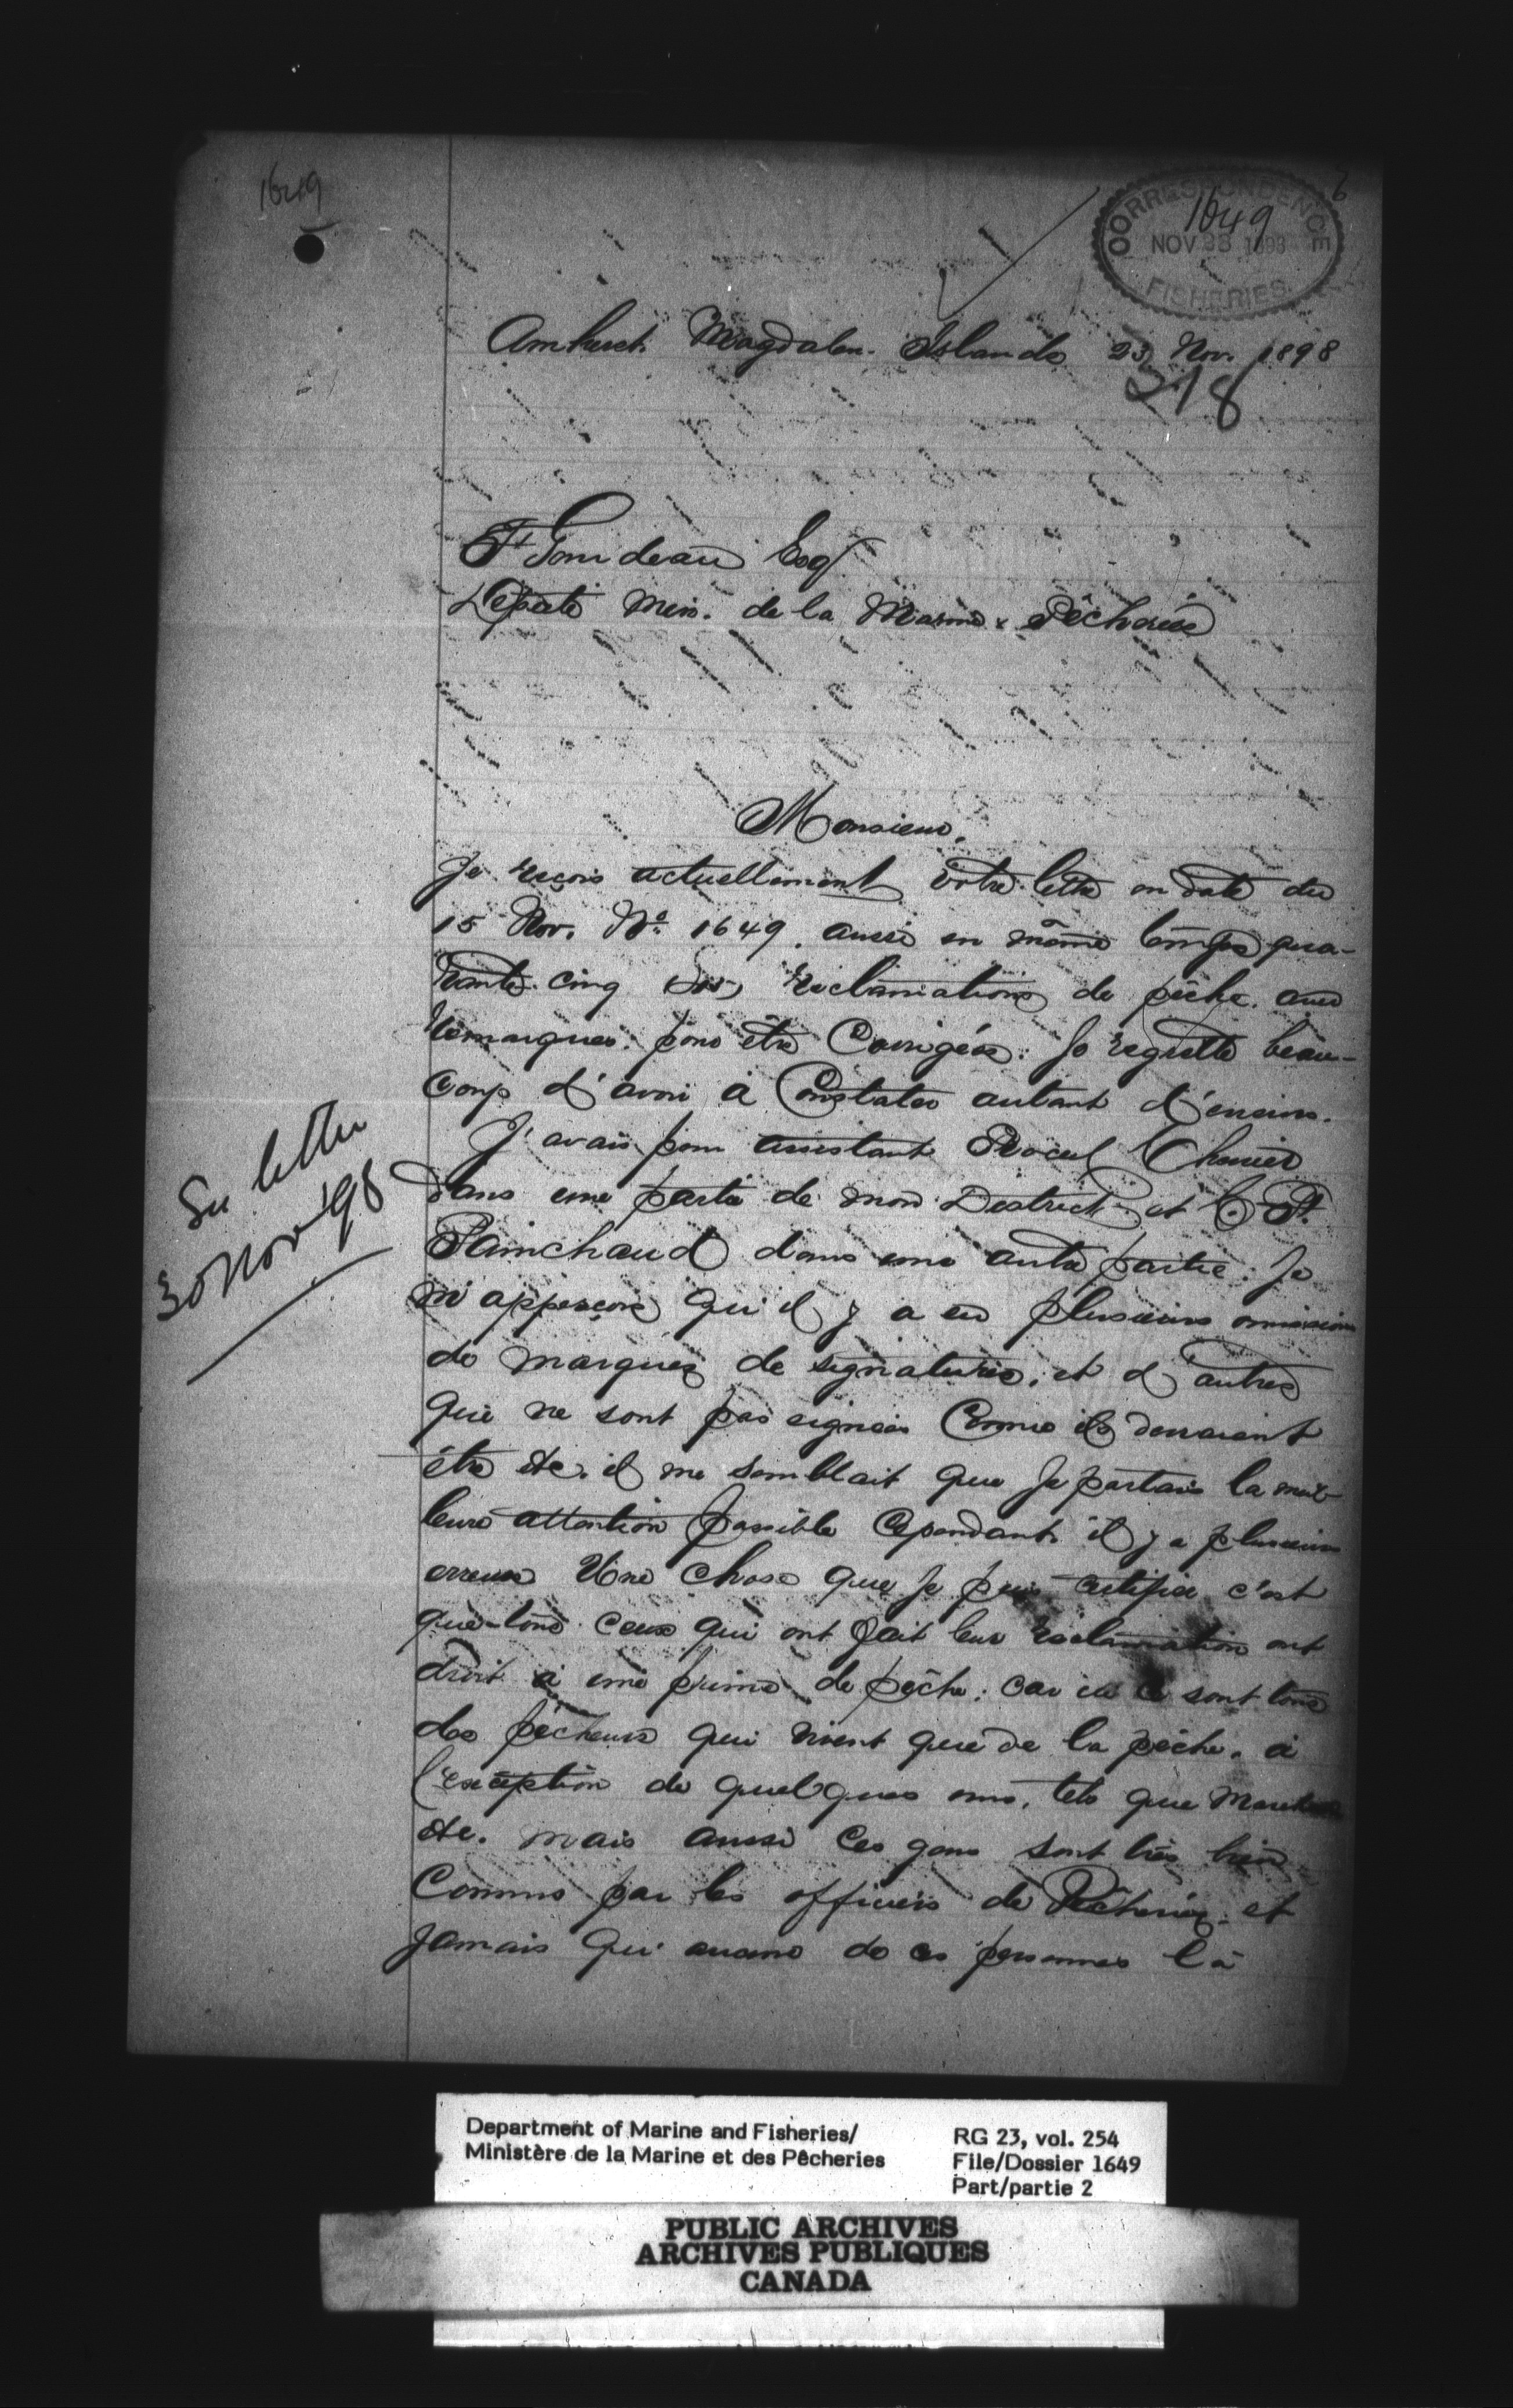 1649
CORRESPONDENCE
1649
NOV 1898
FISHERIES
Amherst. Magdalen. Islands 23 Nov. 1898
218
F Gourdeau Esq
Depute Min. de la Marine & Pêcheries
Monsieur,
Je reçois actuellement votre lettre en date du
15 Nov. No. 1649. aussi en même temps qua-
rante cinq (45) reclamations de pêche. avec
remarques. pour être Corrigées. Je regrette beau-
coup d'avoir à Constater autant d'erreurs.
J'avais pour assistant Chevrier
dans une partie de mon District et C. P.
Painchaud dans une autre partie. Je
m'apperçois qu'il y a eu plusieurs omissions
de marques de signatures, et d'autres
qui ne sont pas signées Comme ils devraient
être etc. il me semblait que je portais la meil-
leure attention possible Cependant il y a plusieurs
erreurs Une chose que je puis certifier c'est
que tous ceux qui ont fait leur reclamation ont
droit à une prime de pêche: car ici ce sont tous
des pêcheurs qui vivent que de la pêche. à
l'exception de quelques uns. tels que
etc. mais aussi ces gens sont très bien
Connus par les officiers de Pêcheries et
Jamais qu'aucune de ces personnes là
See letter
30 Nov '98
Department of Marine and Fisheries/
Ministère de la Marine et des Pêcheries
RG 23, vol. 254
File/Dossier 1649
Part/partie 2
PUBLIC ARCHIVES
ARCHIVES PUBLIQUES
CANADA